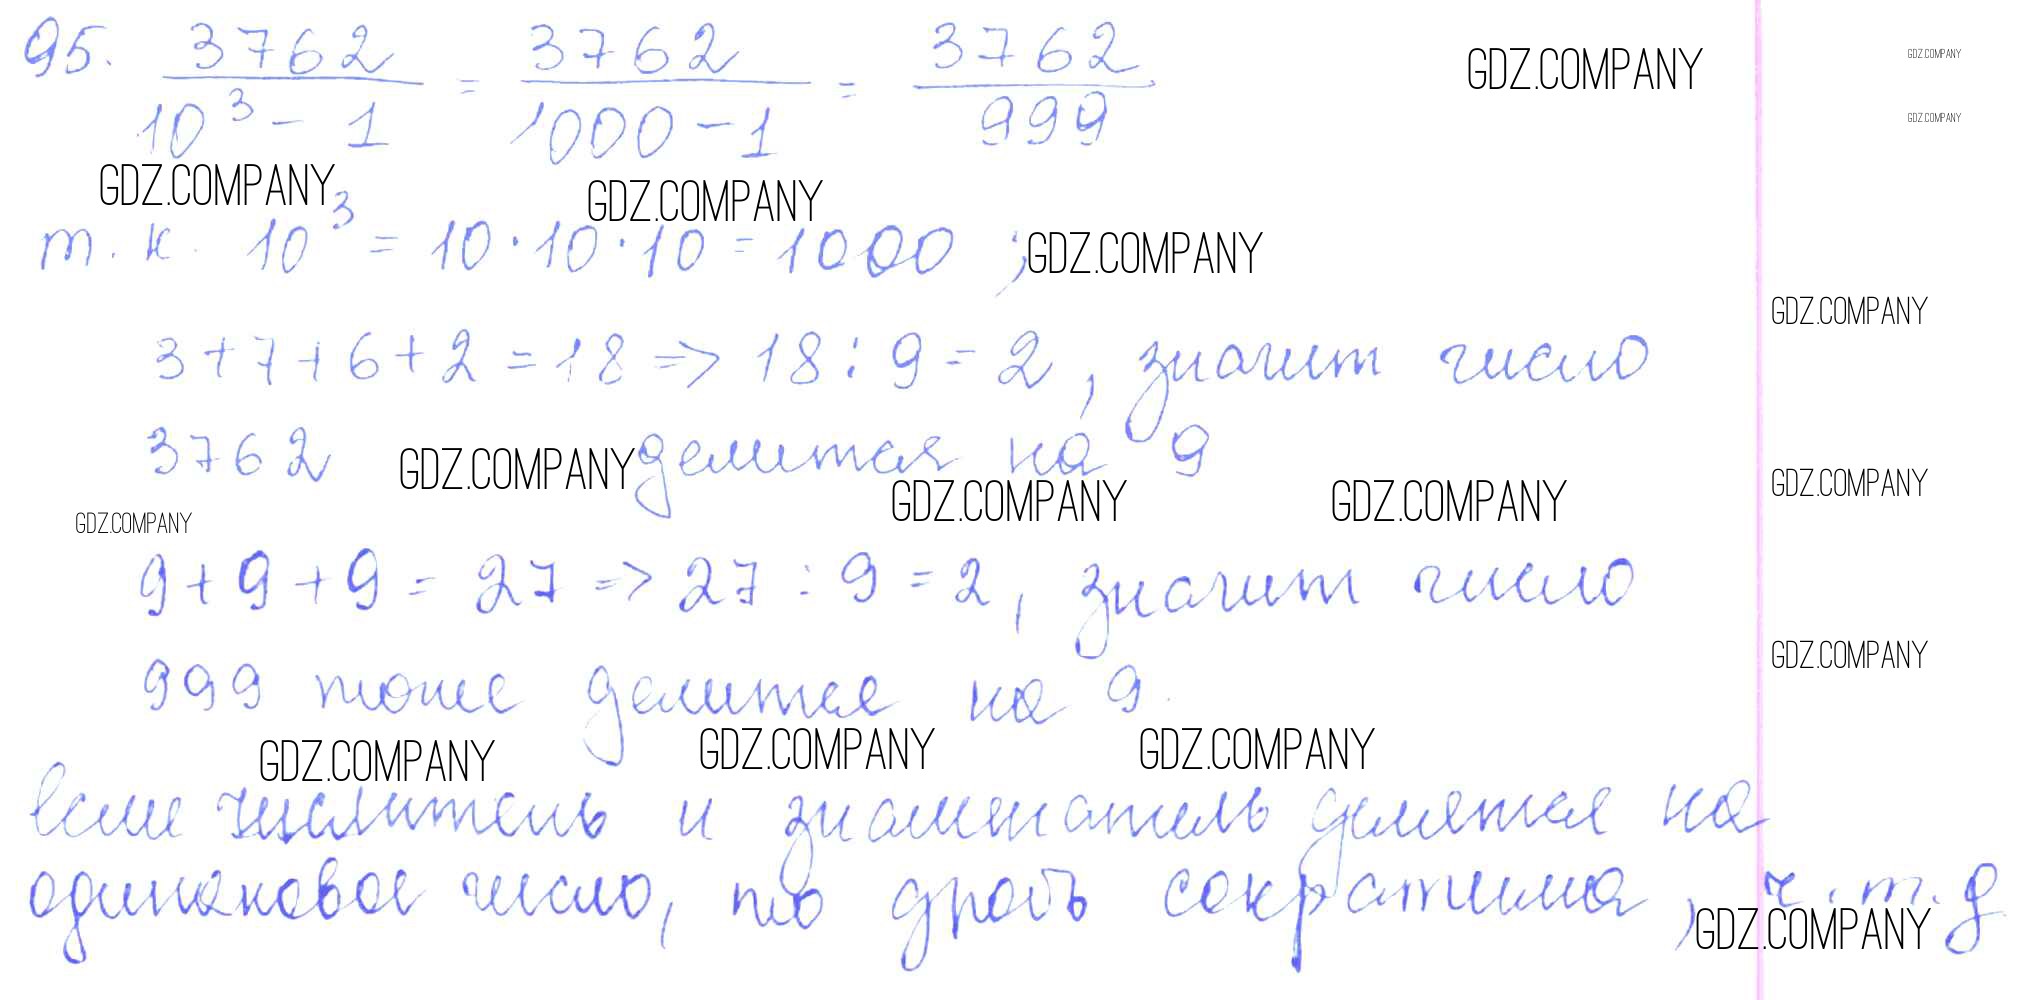 95. 3762 / 10³ - 1 = 3762 / 1000 - 1 = 3762 / 999
GDZ.COMPANY
GDZ.COMPANY
GDZ.COMPANY
GDZ.COMPANY
GDZ.COMPANY
т.к. 10³ = 10 · 10 · 10 = 1000 ;
GDZ.COMPANY
GDZ.COMPANY
3 + 7 + 6 + 2 = 18 => 18 : 9 = 2, значит число
3762 делится на 9
GDZ.COMPANY
GDZ.COMPANY
GDZ.COMPANY
GDZ.COMPANY
GDZ.COMPANY
9 + 9 + 9 = 27 => 27 : 9 = 2, значит число
999 тоже делится на 9.
GDZ.COMPANY
GDZ.COMPANY
GDZ.COMPANY
GDZ.COMPANY
Если числитель и знаменатель делятся на
одинаковое число, то дробь сократима, ч.т.д
GDZ.COMPANY